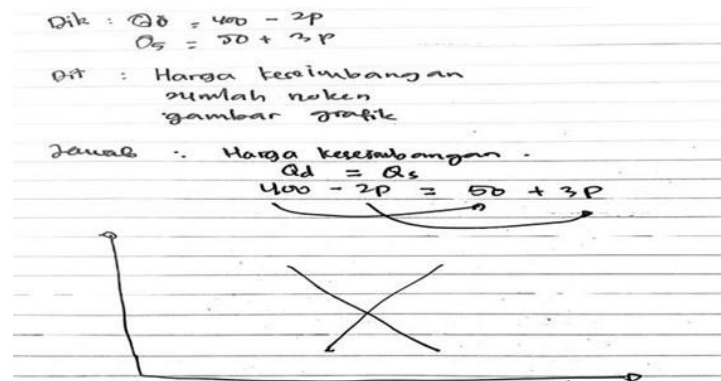 Dik : Qd = 400 - 2P
Qs = 50 + 3P
Dit : Harga keseimbangan
Jumlah noken
gambar grafik
Jawab : Harga keseimbangan.
Qd = Qs
400 - 2P = 50 + 3P